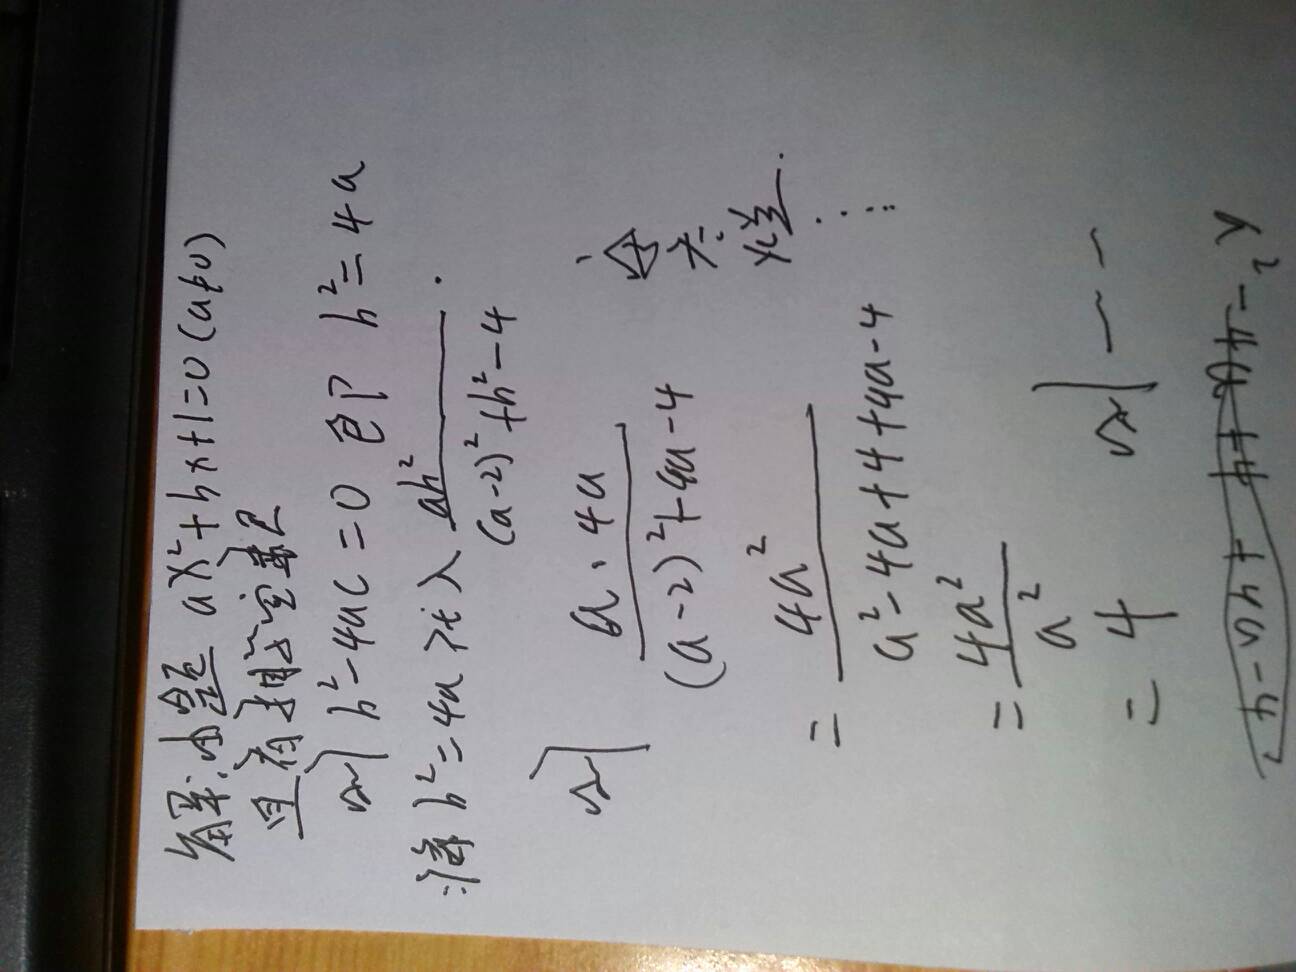 解:由题 ax²+bx+1=0(a≠0)
且有相等实根
则 b²-4ac=0 即 b²=4a
将 b²=4a 代入 ab²/((a-2)²+b²-4).
则 a·4a/((a-2)²+4a-4)
= 4a²/(a²-4a+4+4a-4)
= 4a²/a²
= 4
则